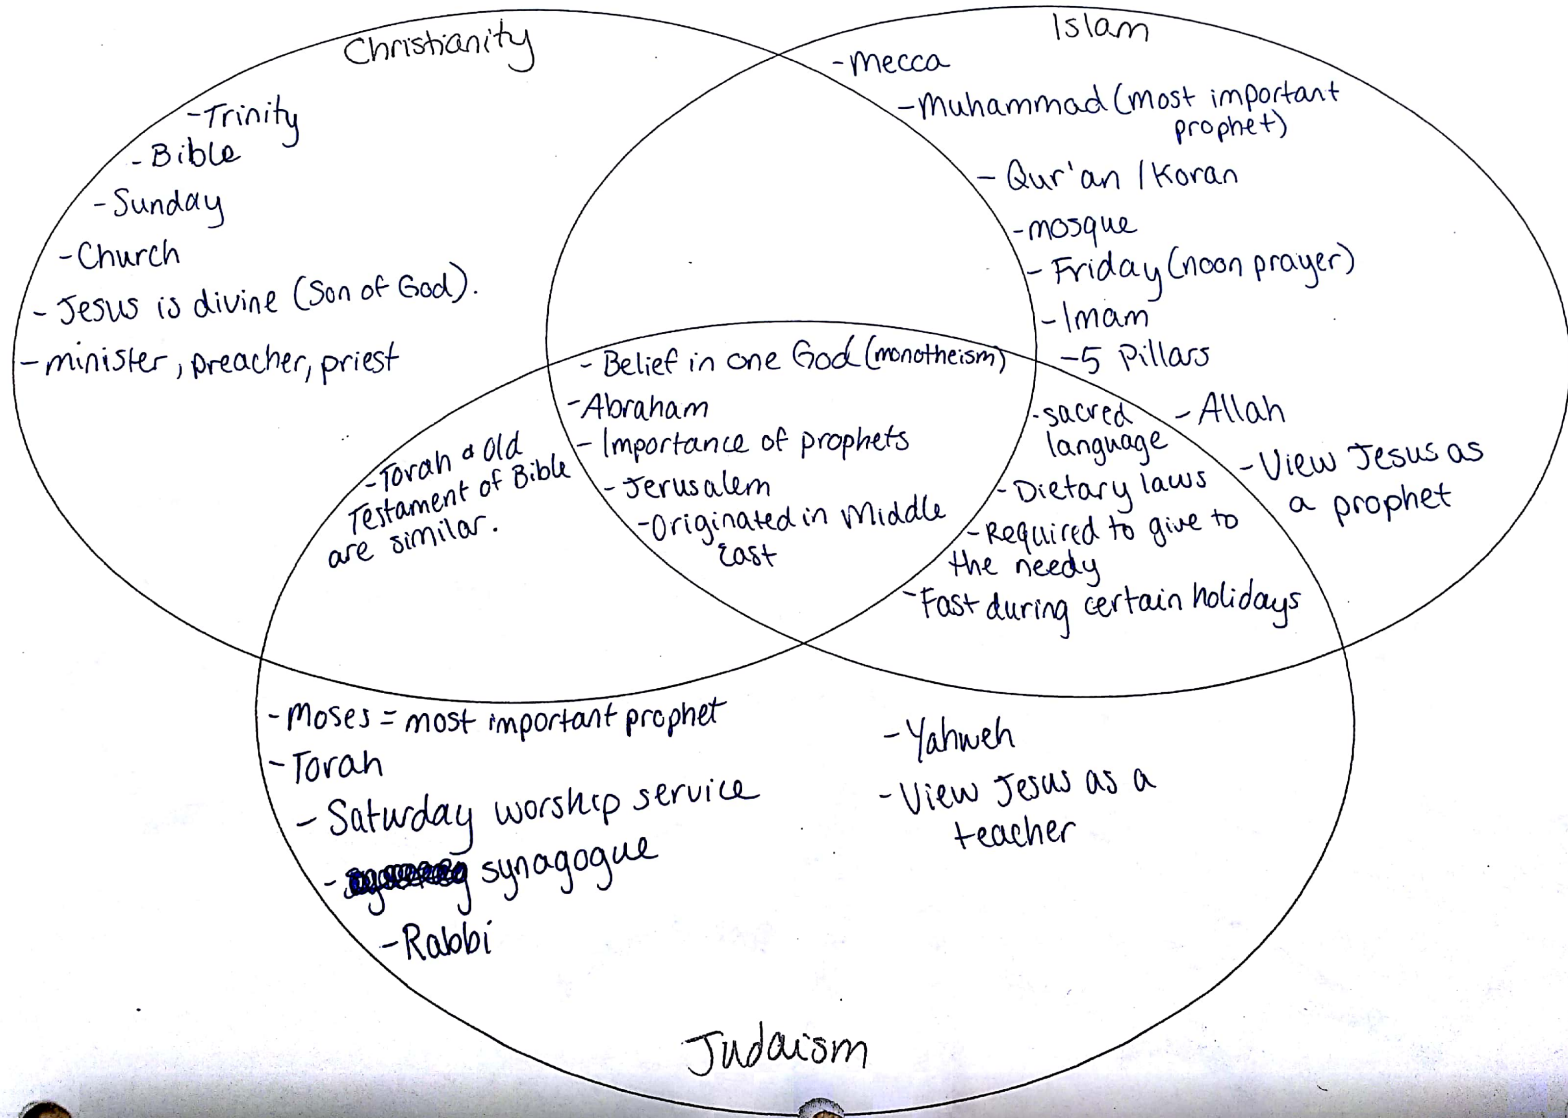 Christianity
-Trinity
- Bible
-Sunday
-Church
- Jesus is divine (Son of God).
- minister, preacher, priest
Islam
-Mecca
-Muhammad (most important
prophet)
- Qur'an / Koran
-mosque
- Friday (noon prayer)
-Imam
-5 Pillars
- Allah
-View Jesus as
a prophet
- Belief in one God (monotheism)
-Abraham
- Importance of prophets
-Jerusalem
-Originated in Middle
East
-Torah & Old
Testament of Bible
are similar.
-sacred
language
- Dietary laws
-Required to give to
the needy
-Fast during certain holidays
-Moses = most important prophet
-Torah
- Saturday worship service
- synagogue
-Rabbi
-Yahweh
-View Jesus as a
teacher
Judaism